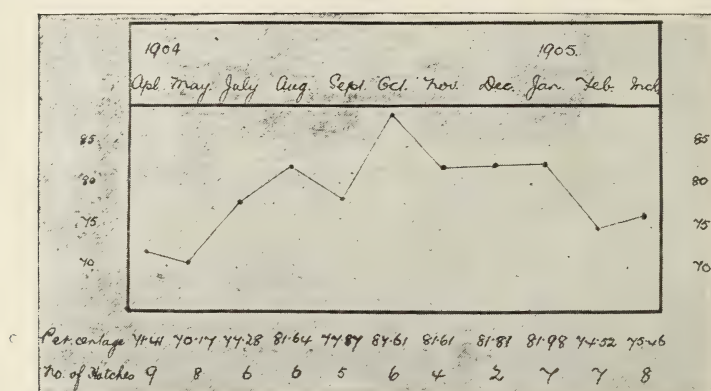 1904 1905.
Apl. May. July Aug. Sept. Oct. Nov. Dec. Jan. Feb. Mch.
85 85
80 80
75 75
70 70
Percentage 71·41 70·17 77·28 81·64 77·87 87·61 81·61 81·81 81·98 74·52 75·46
No. of Hatches 9 8 6 6 5 6 4 2 7 7 8